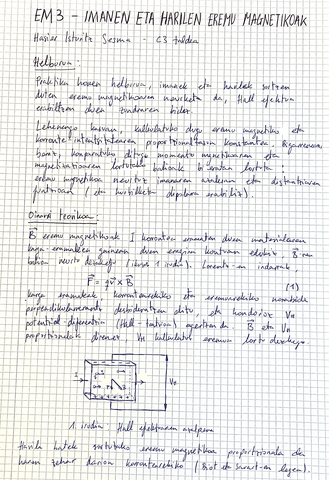 EM3 - IMANEN ETA HARILEN EREMU MAGNETIKOAK
Hasier Istoritz Sesma - C3 taldea
Helburua:
Praktika honen helburua, imanek eta harilek sortzen
duten eremu magnetikoaren neurketa da, Hall efektua
erabiltzen duen zundaren bidez.
Lehenengo kasuan, kalkulatuko dugu eremu magnetiko eta
korronte intentsitatearen proportzionaltasun konstantea. Bigarrenean,
berriz, konparatuko ditugu momentu magnetikoaren eta
magnetizazioaren balioak
eremu magnetikoa neurtuz imanaren ardatzean eta distantziaren
funtzioan (eta
Oinarri teorikoa:
B eremu magnetikoak I korrontea eramaten duen materialaren
karga eramaileen gainean duen eragina kontuan edukiz, B-ren
balioa neurtu dezakegu (ikusi 1. irudia). Lorentz-en indarrak:
F⃗ = qv⃗ × B⃗ (1)
karga eramaileak korrontearekiko eta eremuarekiko norabide
perpendikularrean desbideratzen ditu, eta ondorioz V_H
potentzial-diferentzia (Hall-tentsioa) agertzen da. B eta V_H
proportzionalak direnez, V_H kalkulatuz eremua lortu dezakegu.
I
V_H
1. irudia Hall efektuaren
Harila batek sortutako eremu magnetikoa proportzionala da
haren zehar doan korrontearekiko (Biot eta Savart-en legea).